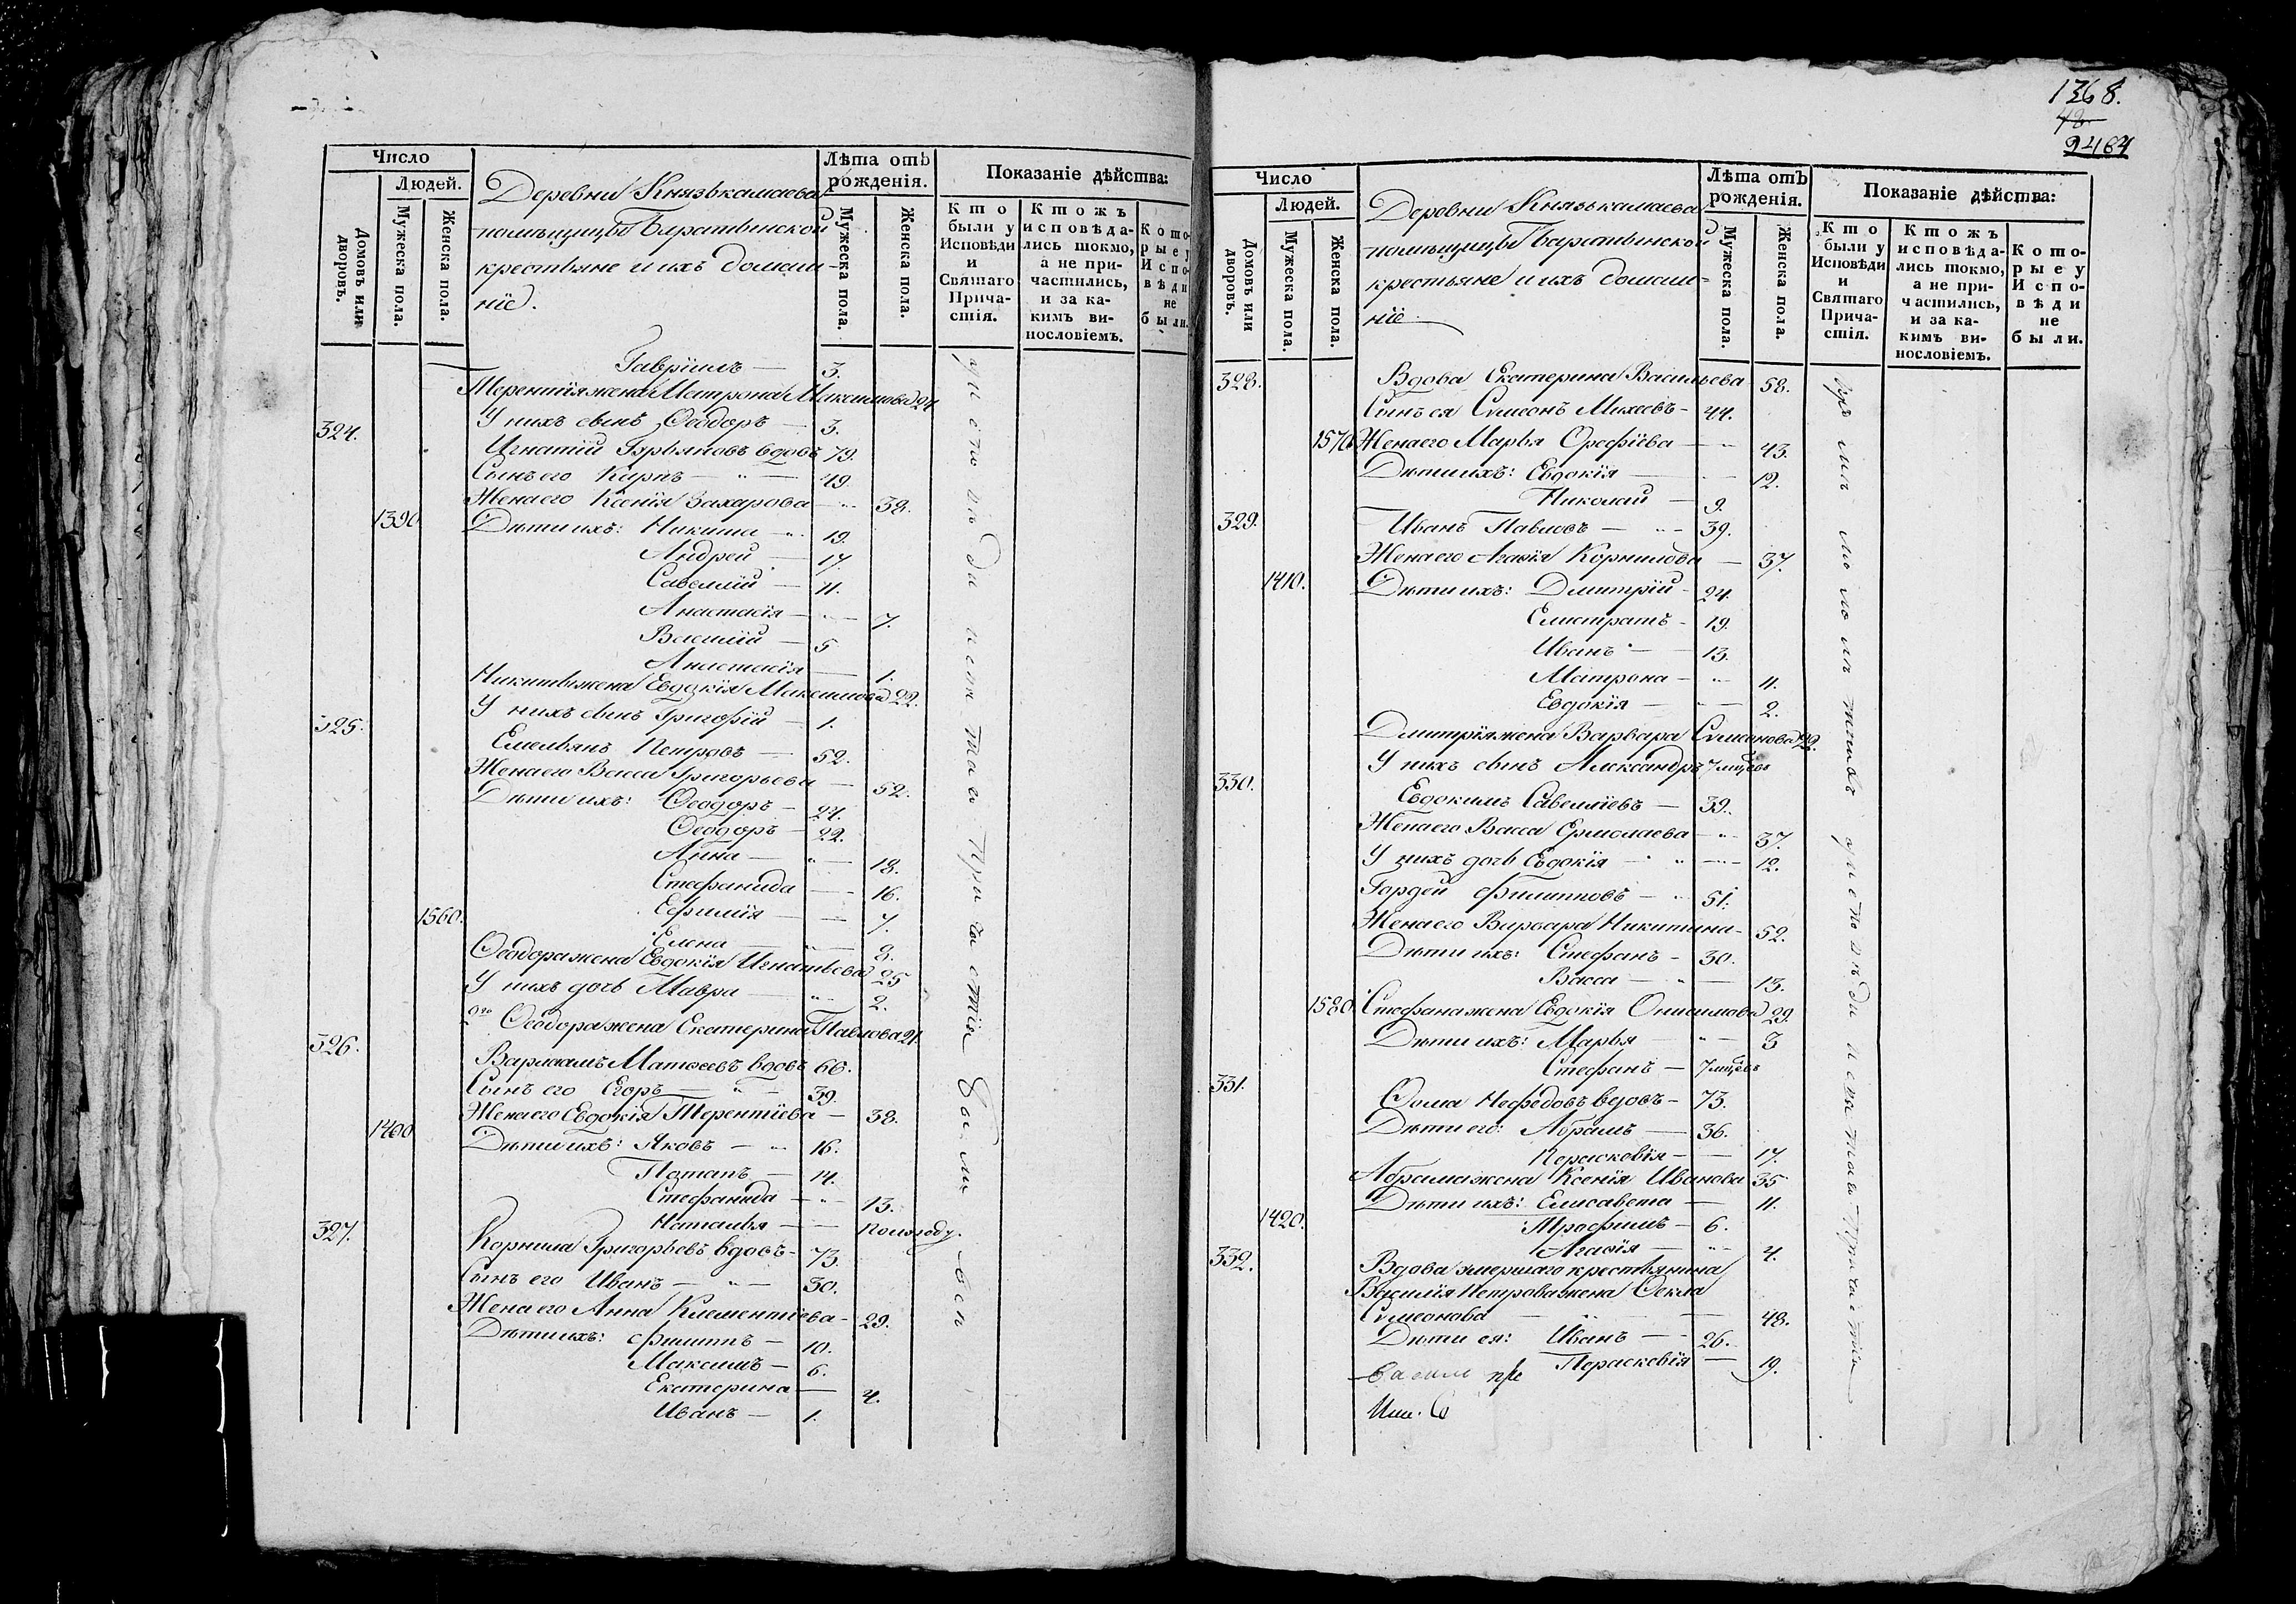 Число
Людей.
Домовъ или дворовъ.
Мужеска пола.
Женска пола.
Деревни Князькамаева
помѣщицы Баратынской
крестьяне и ихъ домаш-
нiе.
Лѣта отъ рожденія.
Мужеска пола.
Женска пола.
Показаніе дѣйства:
Кто были у Исповѣди и Святаго Причастія.
Ктожъ исповѣдались токмо, а не причастились, и за какимъ винословіемъ.
Которые у Исповѣди не были.
Гавріилъ — 3.
Терентія жена Матрона Максимова 24
У нихъ сынъ Ѳеодоръ — 3.
324. Игнатій Гурьяновъ вдовъ 79.
Сынъ его Кирпъ — 49
Жена его Ксенія Захарова — 38.
1390 Дѣти ихъ: Никита — 19.
Андрей — 17.
Савелій — 11.
Анастасія — 7.
Василій — 5
Анастасія — 1.
Никиты жена Евдокія Максимова 22.
У нихъ сынъ Григорій — 1.
325. Емельянъ Петровъ — 52.
Жена его Васса Григорьева — 52.
Дѣти ихъ: Ѳеодоръ — 24.
Ѳеодоръ — 22.
Анна — 18.
Стефанида — 16.
1560. Ефимія — 7.
Елена — 3.
Ѳеодора жена Евдокія Игнатьева 25
У нихъ дочь Мавра — 2.
2го Ѳеодора жена Екатерина Павлова 21.
326. Варлаамъ Матѳеевъ вдовъ 60.
Сынъ его Егоръ — 39.
Жена его Евдокія Терентіева — 38.
1400 Дѣти ихъ: Яковъ — 16.
Потапъ — 14.
Стефанида — 13.
Наталья — полугоду.
327. Корнила Григорьевъ вдовъ — 73.
Сынъ его Иванъ — 30.
Жена его Анна Клементіева — 29.
Дѣти ихъ: Филиппъ — 10.
Максимъ — 6.
Екатерина — 4.
Иванъ — 1.
у исповѣди и святаго причастія были всѣ
1368.
48
2464
Число
Людей.
Домовъ или дворовъ.
Мужеска пола.
Женска пола.
Деревни Князькамаева
помѣщицы Баратынской
крестьяне и ихъ домаш-
ніе
Лѣта отъ рожденія.
Мужеска пола.
Женска пола.
Показаніе дѣйства:
Кто были у Исповѣди и Святаго Причастія.
Ктожъ исповѣдались токмо, а не причастились, и за какимъ винословіемъ.
Которые у Исповѣди не были.
328. Вдова Екатерина Васильева 58.
Сынъ ея Сѵмеонъ Михеевъ — 44.
1570 Жена его Марья Орефіева — 43.
Дѣти ихъ: Евдокія — 12.
Николай — 9.
329. Иванъ Павловъ — 39.
Жена его Агафія Корнилова — 37.
1410. Дѣти ихъ: Дмитрій — 24.
Елистратъ — 19.
Иванъ — 13.
Матрона — 11.
Евдокія — 2.
Дмитрія жена Варвара Сѵмеонова 22.
У нихъ сынъ Александръ 7 мцовъ
330. Евдокимъ Савеліевъ — 39.
Жена его Васса Ермолаева — 37.
У нихъ дочь Евдокія — 12.
Гордей Филипповъ — 51.
Жена его Варвара Никитина — 52.
Дѣти ихъ: Стефанъ — 30.
Васса — 13.
1580. Стефана жена Евдокія Онисимова 29.
Дѣти ихъ: Марья — 3
Стефанъ — 7 мцовъ
331. Ѳома Нефедовъ вдовъ — 73.
Дѣти его: Абрамъ — 36.
Перасковія — 17.
Абрама жена Ксенія Иванова 35
Дѣти ихъ: Елисавета — 11.
1420. Трофимъ — 6.
Агафія — 4.
332. Вдова умершаго крестьянина
Василія Петрова жена Ѳекла
Сѵмеонова — 48.
Дѣти ея: Иванъ — 26.
Перасковія — 19.
у исповѣди и святаго причастія